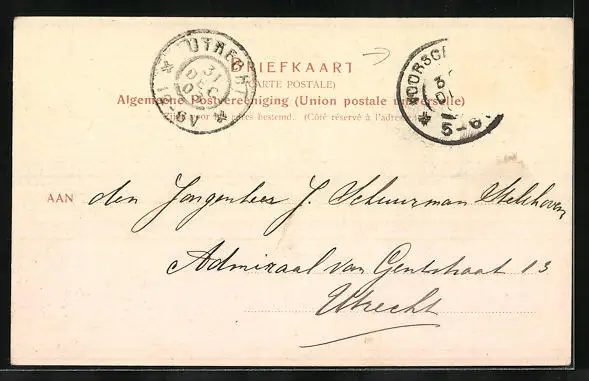 BRIEFKAART
(CARTE POSTALE)
Algemeene Postvereeniging (Union postale universelle)
Zijde voor het adres bestemd. (Côté réservé à l'adresse)
UTRECHT
31
DEC
5-6
AAN den Jongenheer J. Schuurman Stekhoven
Admiraal van Gentstraat 13
Utrecht